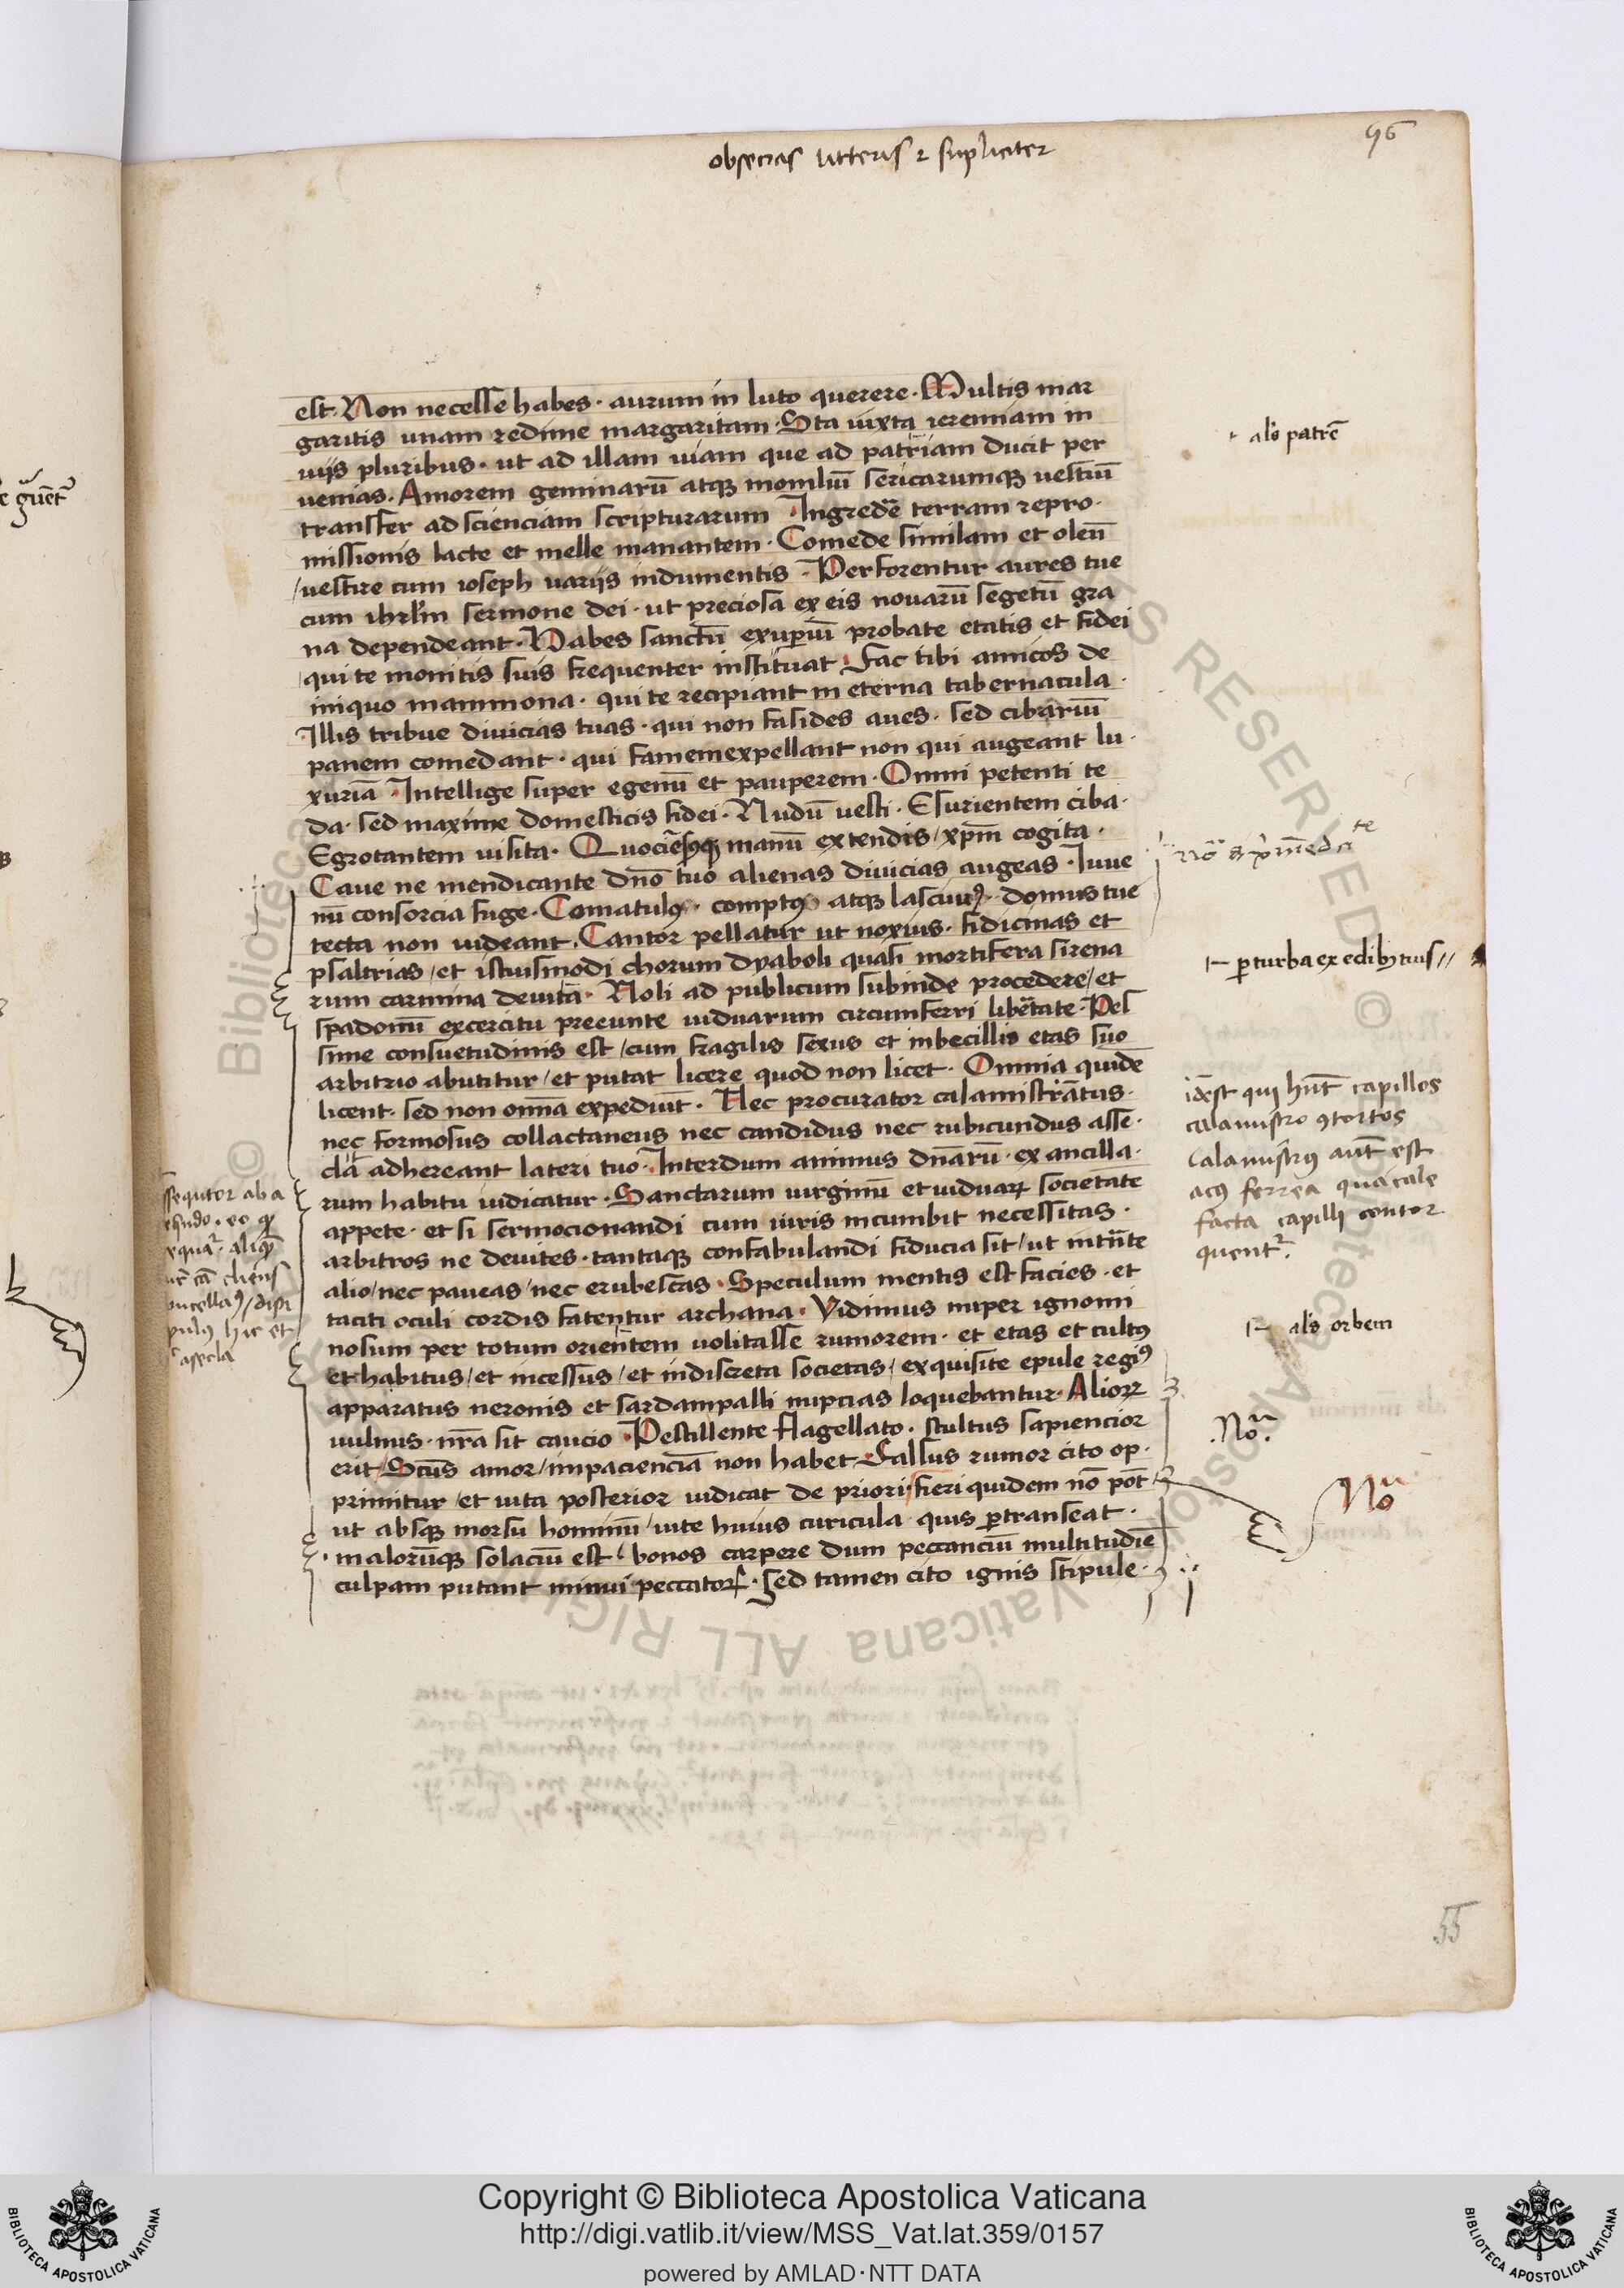 96
obsecras litteris ⁊ supliciter
est. Non necesse habes · aurum in luto querere · Multis mar
garitis unam redime margaritam · Sta iuxta ieremiam in
viis pluribus · ut ad illam uiam que ad patriam ducit per
uenias. Amorem gemmarū atqꝫ moniliū sericarumqꝫ uestiū
transfer ad scienciam scripturarum · Ingredē terram repro·
missionis lacte et melle manantem · Comede similam et oleū
/uestire cum ioseph uariis indumentis · Perforentur aures tue
cum ihrl̄m sermone dei · ut preciosa ex eis nouarū segetū gra
na dependeant · Habes sanctū exuꝑiū probate etatis et fidei
qui te monitis suis frequenter instituat · Fac tibi amicos de
iniquo mammona · qui te recipiant in eterna tabernacula ·
Illis tribue diuicias tuas · qui non fasides aues · sed cibariū
panem comedant · qui famem expellant non qui augeant lu·
xuriā · Intellige super egenū et pauperem · Omni petenti te
da · sed maxime domesticis fidei · Nudū uesti · Esurientem ciba·
Egrotantem uisita · Quociēscūqꝫ manū extendis / xp̄m cogita ·
Caue ne mendicante dn̄o tuo alienas diuicias augeas · Iuue
nū consorcia fuge · Comatulꝰ · comptꝰ atqꝫ lasciuꝰ · domus tue
tecta non uideant · Cantor pellatur ut noxius · fidicinas et
psaltrias / et istiusmodi chorum dyaboli quasi mortifera sirena
rum carmina deuita · Noli ad publicum subinde procedere / et
spadonū excercitu preeunte uiduarum circumferri libertate · Pes
sime consuetudinis est / cum fragilis sexus et inbecillis etas suo
arbitrio abutitur / et putat licere quod non licet · Omnia quide
licent · sed non om̄a expediūt · Nec procurator calamistratus ·
nec formosus collactaneus nec candidus nec rubicundus asse·
cla adhereant lateri tuo · Interdum animus dn̄arū · ex ancilla·
rum habitu iudicatur · Sanctarum uirginū et uiduaꝝ societate
appete · et si sermocionandi cum uiris incumbit necessitas ·
arbitros ne deuites · tantaqꝫ confabulandi fiducia sit / ut intrāte
alio / nec paueas / nec erubescas · Speculum mentis est facies · et
taciti oculi cordis fatentur archana · Vidimus nuper ignomi
nosum per totum orientem uolitasse rumorem · et etas et cultꝰ
et habitus / et incessus / et indiscreta societas / exquisite epule regiꝰ
apparatus neronis et sardampalli nupcias loquebantur · Alioꝝ
uulnus · nr̄a sit caucio · Pestillente flagellato · stultus sapiencior
erit / Sc̄us amor / impacienciā non habet · Falsus rumor cito op·
primitur / et uita posterior iudicat de priori / fieri quidem nō pōt
ut absqꝫ morsu hominū / uite huius curicula quis ꝑtranseat ·
· malorūqꝫ solaciū est / bonos carpere dum peccanciū multitudīe
culpam putant minui peccatoꝝ · Sed tamen cito ignis stipule ·
al's patrē
⊢ ꝑturba ex edibꝫ tuis //
id est qui hn̄t capillos
calamistro ꝯtortos
Calamistrꝰ aut̄ est
acꝰ ferrea qua cale
facta capilli contor
quentᷣ.
⊢ al's orbem
· Noᵃ.
Noᵃ
55
Copyright © Biblioteca Apostolica Vaticana
http://digi.vatlib.it/view/MSS_Vat.lat.359/0157
powered by AMLAD·NTT DATA
BIBLIOTECA APOSTOLICA VATICANA
BIBLIOTECA APOSTOLICA VATICANA